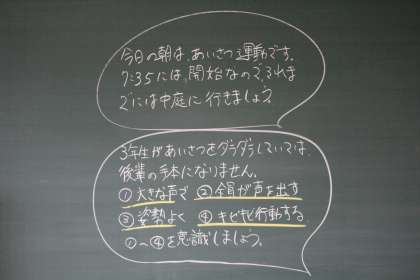 今日の朝は、あいさつ運動です。
7:35には、開始なので、それま
でには中庭に行きましょう。
3年生があいさつをダラダラしていては、
後輩の手本になりません。
①大きな声で ②全員が声を出す
③姿勢よく ④キビキビ行動する
①〜④を意識しましょう。